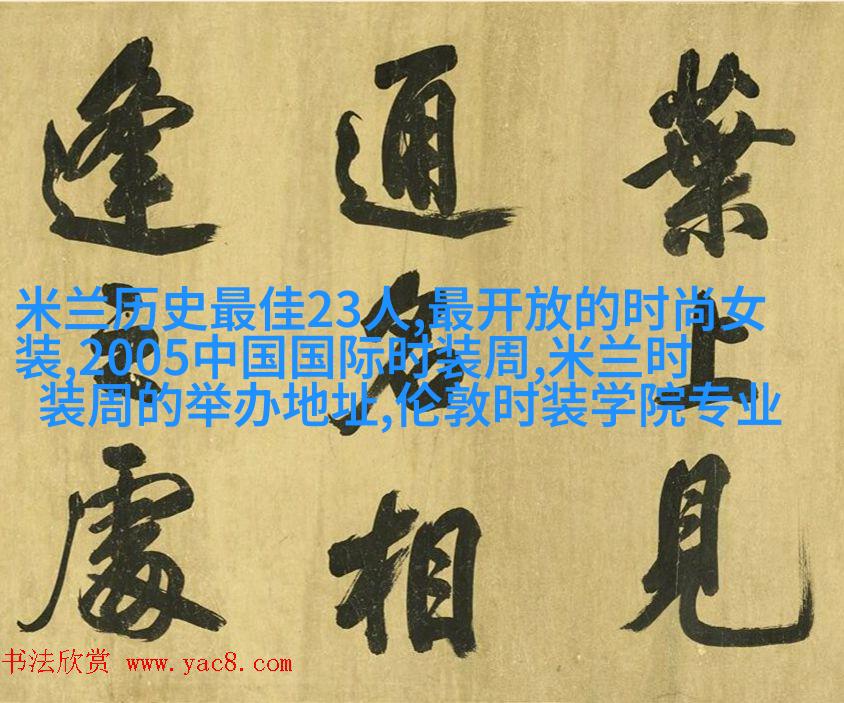 葉上見
通名相
逢處
米兰历史最佳23人,最开放的时尚女
装,2005中国国际时装周,米兰时
装周的举办地址,伦敦时装学院专业
书法欣赏 www.yac8.com